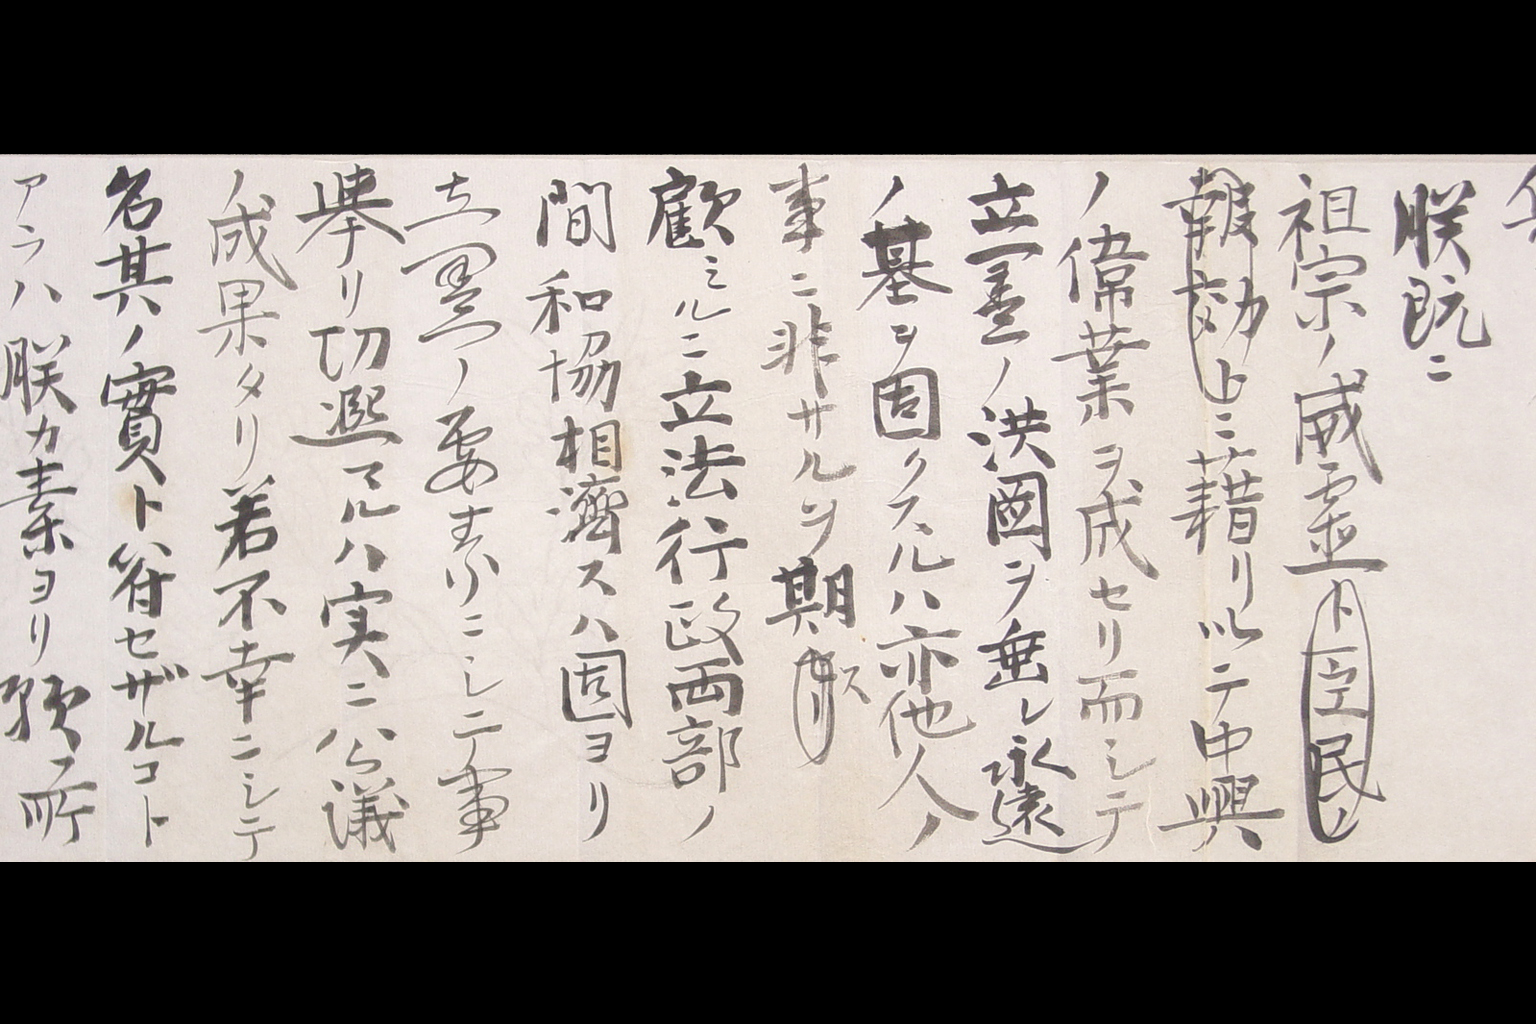 朕既ニ
祖宗ノ威靈ト臣民ノ
報効トニ藉リ以テ中興
ノ偉業ヲ成セリ而シテ
立憲ノ洪図ヲ垂レ永遠
ノ基ヲ固クスルハ亦他人ノ
事ニ非サルヲ期ス
顧ミルニ立法行政両部ノ
間和協相濟スハ固ヨリ
立憲ノ要素ニシテ事
挙リ功 ルハ実ニ公議
ノ成果タリ若不幸ニシテ
名其ノ實ト符セザルコト
アラハ朕カ素ヨリ 所